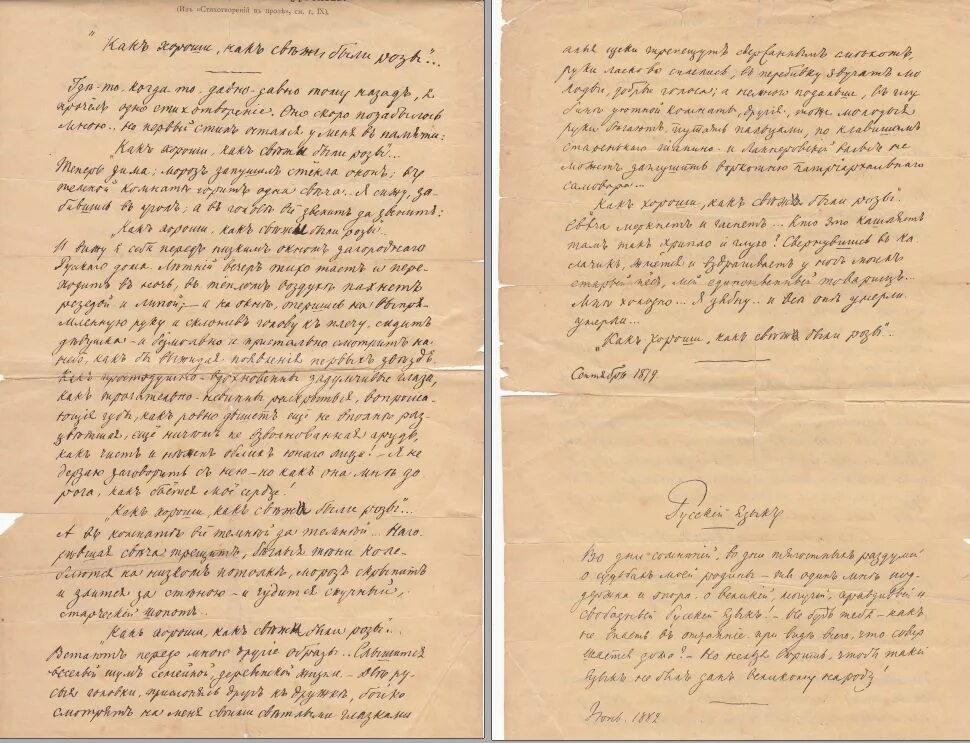 (Изъ «Стихотвореній въ прозѣ», см. г. IX).
"Какъ хороши, какъ свѣжи были розы"...
Гдѣ-то, когда-то, давно-давно тому назадъ, я
прочелъ одно стихотвореніе. Оно скоро позабылось
мною.. но первый стихъ остался у меня въ памяти:
"Какъ хороши, какъ свѣжи были розы"...
Теперь зима; морозъ запушилъ стёкла оконъ; въ
темной комнатѣ горитъ одна свѣча. Я сижу, за-
бившись въ уголъ; а въ головѣ всё звенитъ да звенитъ:
"Какъ хороши, какъ свѣжи были розы"...
И вижу я себя передъ низкимъ окномъ загороднаго
Русскаго дома. Лѣтній вечеръ тихо таетъ и пере-
ходитъ въ ночь, въ тёпломъ воздухѣ пахнетъ
резедой и липой; — а на окнѣ, опершись на выпря-
мленную руку и склонивъ голову къ плечу, сидитъ
дѣвушка - и безмолвно и пристально смотритъ на
небо, какъ бы выжидая появленія первыхъ звѣздъ.
Какъ простодушно-вдохновенны задумчивые глаза,
какъ трогательно-невинны раскрытыя, вопроша-
ющія губы, какъ ровно дышетъ ещё не вполнѣ раз-
цвѣтшая, ещё ничѣмъ не взволнованная грудь,
какъ чистъ и нѣженъ обликъ юнаго лица! — Я не
дерзаю заговорить съ нею - но какъ она мнѣ до-
рога, какъ бьётся моё сердце!
"Какъ хороши, какъ свѣжи были розы"...
А въ комнатѣ всё темнѣй да темнѣй... Наго-
рѣвшая свѣча трещитъ, бѣглыя тѣни коле-
блются на низкомъ потолкѣ, морозъ скрыпитъ
и злится за стѣною - и чудится скучный,
старческій шопотъ...
"Какъ хороши, какъ свѣжи были розы"...
Встаютъ передо мною другіе образы... Слышится
веселый шумъ семейной, деревенской жизни. Двѣ ру-
сыя головки, прислонясь другъ къ дружкѣ, бойко
смотрятъ на меня своими свѣтлыми глазками
алыя щеки трепещутъ сдержаннымъ смѣхомъ,
руки ласково сплелись, въ перебивку звучатъ мо-
лодые, добрые голоса; а немного подальше, въ глу-
бинѣ уютной комнаты, другія, тоже молодыя
руки бѣгаютъ, путаясь пальцами, по клавишамъ
старенькаго піанино - и Ланнеровскій вальсъ не
можетъ заглушить воркотню патріархальнаго
самовара...
"Какъ хороши, какъ свѣжи были розы"...
Свѣча меркнетъ и гаснетъ... Кто это кашляетъ
тамъ такъ хрипло и глухо? Свернувшись въ ка-
лачикъ, жмется и вздрагиваетъ у ногъ моихъ
старый пёсъ, мой единственный товарищъ...
Мнѣ холодно... Я зябну.. и всѣ они умерли..
умерли...
"Какъ хороши, какъ свѣжи были розы"...
Сентябрь 1879
Русскій Языкъ
Во дни сомнѣній, во дни тягостныхъ раздумій
о судьбахъ моей родины - ты одинъ мнѣ под-
держка и опора, о великій, могучій, правдивый и
свободный Русскій Языкъ! - Не будь тебя - какъ
не впасть въ отчаяніе при видѣ всего, что совер-
шается дома? - Но нельзя вѣрить, чтобы такой
языкъ не былъ данъ великому народу!
Іюнь. 1882